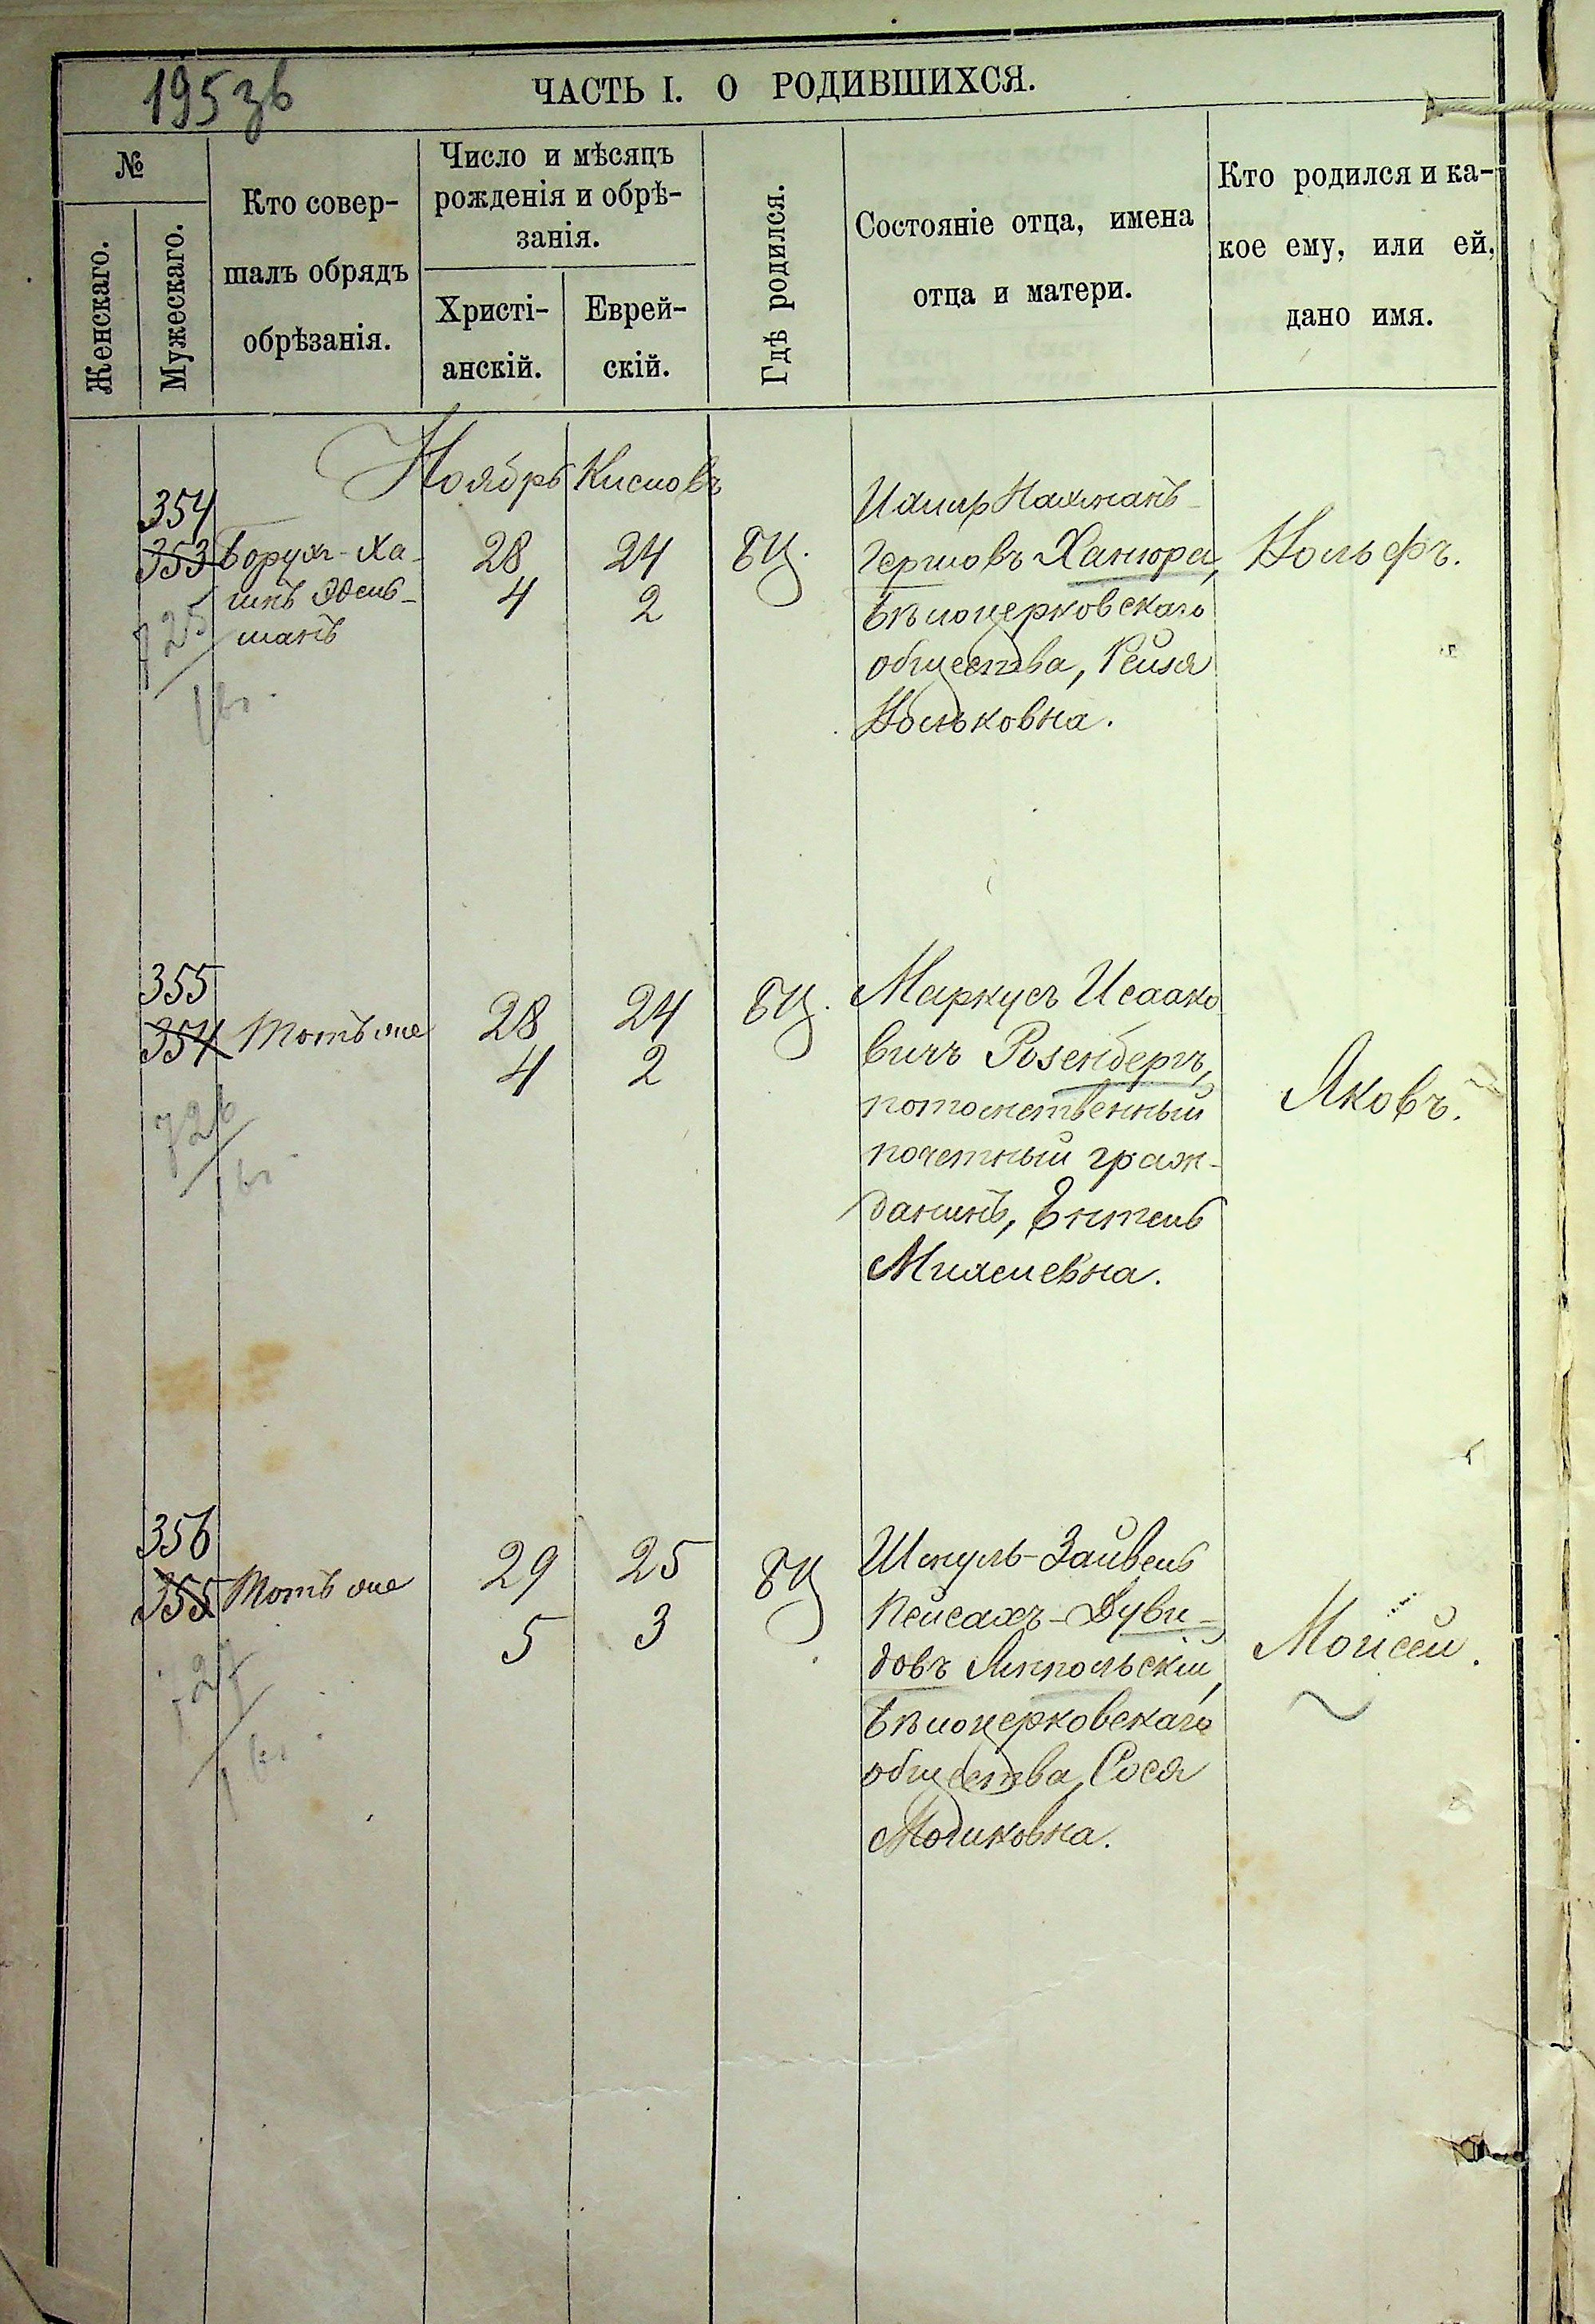 195зв
ЧАСТЬ I. О РОДИВШИХСЯ.
№
Женскаго.
Мужескаго.
Кто совер-
шалъ обрядъ
обрѣзанія.
Число и мѣсяцъ
рожденія и обрѣ-
занія.
Христі-
анскій.
Еврей-
скій.
Гдѣ родился.
Состояніе отца, имена
отца и матери.
Кто родился и ка-
кое ему, или ей,
дано имя.
Ноябрь Кислевъ
354
353
Борухъ-Ха-
имъ Эдель-
манъ
725
28
4
24
2
БЦ.
Нахманъ-
Гершовъ Ханюра,
Бѣлоцерковскаго
общества, Рейзя
Вольковна.
Вольфъ.
355
354
Тотъ же
726
28
4
24
2
БЦ.
Маркусъ Исаако
вичъ Розенбергъ,
потомственный
почетный граж-
данинъ, Ентель
Михелевна.
Яковъ.
356
355
Тотъ же
727
29
5
25
3
БЦ
Шмуль-Зайвель
Пейсахъ-Дуви-
довъ Ямпольскій,
Бѣлоцерковскаго
общества, Сося
Мошковна.
Мойсей.